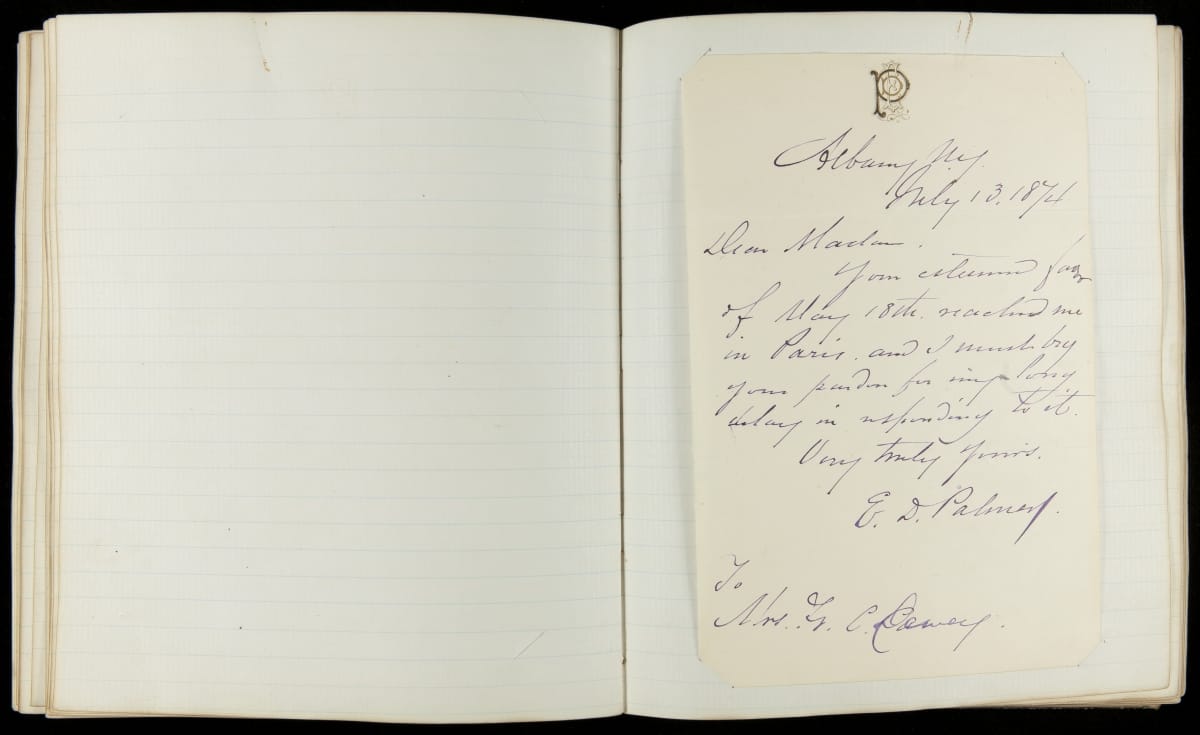 Albany N.Y.
July 13. 1874
Dear Madam.
Your esteemed favor
of May 18th. reached me
in Paris. and I must beg
your pardon for my long
delay in responding to it.
Very truly yours.
E. D. Palmer.
To
Mrs. C.